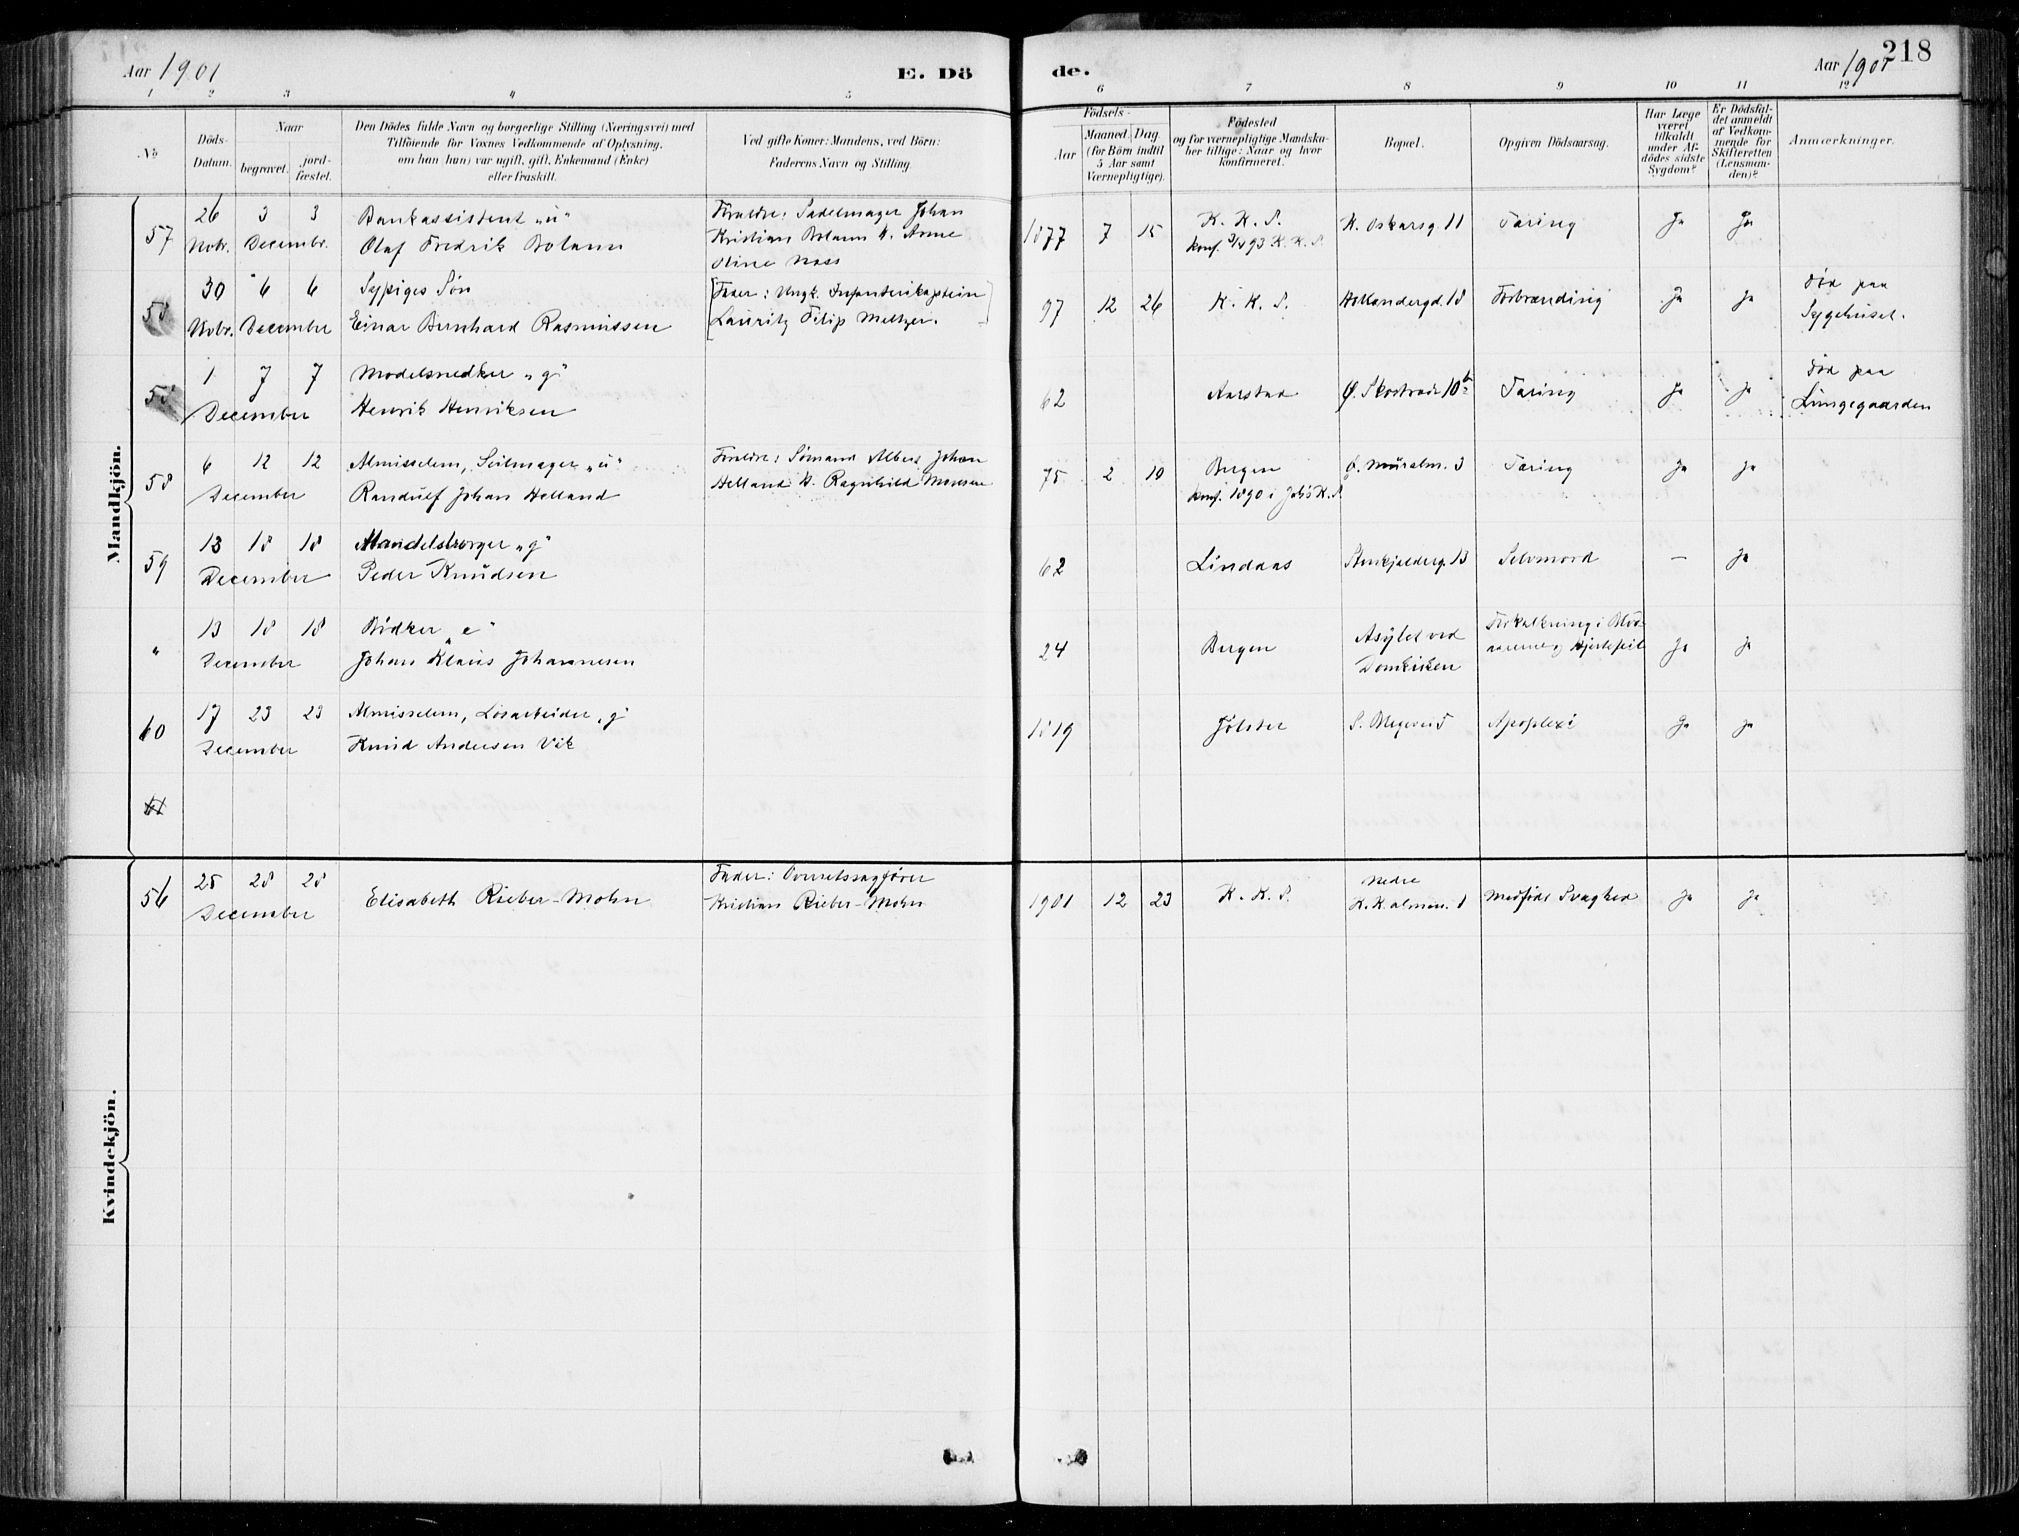 Aar 1901
E. Dö
de.
Aar 1901
218
1 2 3 4 5 6 7 8 9 10 11 12
No
Döds-
Datum.
Naar
begravet.
jord-
fæstet.
Den Dödes fulde Navn og borgerlige Stilling (Næringsvei) med
Tilföiende for Voxnes Vedkommende af Oplysning,
om han (hun) var ugift, gift, Enkemand (Enke)
eller fraskilt.
Ved gifte Koner: Mandens, ved Börn:
Faderens Navn og Stilling.
Födsels-
Aar
Maaned. Dag.
(for Börn indtil
5 Aar samt
Værnepligtige).
Födested
og for værnepligtige Mandska-
ber tillige: Naar og hvor
konfirmeret.
Bopæl.
Opgiven Dödsaarsag.
Har Læge
været
tilkaldt
under Af-
dödes sidste
Sygdom?
Er Dödsfal-
det anmeldt
af Vedkom-
mende for
Skifteretten
(Lensman-
den)?
Anmærkninger.
Mandkjön.
57 26 3 3 Bankassistent "u" Forældre: Sadelmager Johan 1877 7 15 K. K. S. K. Oskarsg. 11 Tæring Ja Ja
Nobr. Decembr. Olaf Fredrik Bolann Kristian Bolann & Anne konf. 93 K. K. S.
Oline Næss
58 30 6 6 Sypiges Søn [Fader: Ungk. Infanterikaptein 97 12 26 K. K. S. 18 Forbrænding Ja Ja Død paa
Nobr. December Einar Bernhard Rasmussen Lauritz Filip Meltzer.] Sygehuset.
58 1 7 7 Modelsnedker "g" 62 Aarstad Ø. Skostræde 10 b Tæring Ja Ja Død paa
December Henrik Henriksen Lungegaarden
58 6 12 12 Almisselem, Seilmager "u" Forældre: Sømand Albert Johan 75 2 10 Bergen Ø. Muralm. 3 Tæring Ja Ja
December Randulf Johan Helland Helland & Ragnhild Monsen konf. 1890 i Johs K. S.
59 13 18 18 Handelsborger "g" 62 Lindaas Stenkjelderg. 13 Selvmord — Ja
December Peder Knudsen
" 13 18 18 Bödker "e" 24 Bergen Asylet ved Forkalkning i Blod-
December Johan Klaus Johannesen Domkirken aarerne og Hjertefeil Ja Ja
60 17 23 23 Almisselem, Løsarbeider "g" 1819 Jølster Apoplexi Ja Ja
December Knud Andersen Vik
61
Kvindekjön.
56 25 28 28 Elisabeth Rieber-Mohn Fader: Overretssagfører 1901 12 23 K. K. S. Nedre Medfødt Svaghed Ja Ja
December Kristian Rieber-Mohn K. K. almen. 1